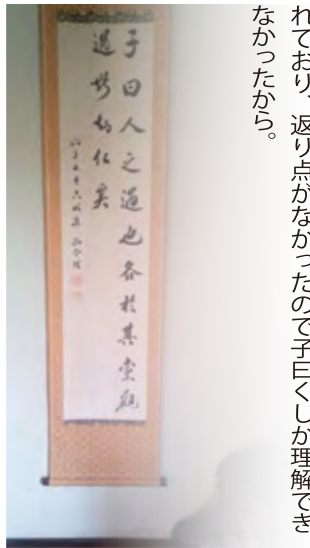 れており、返り点がなかったので子曰くしか理解でき
なかったから。
子曰人之過也各於其黨觀
過斯知仁矣